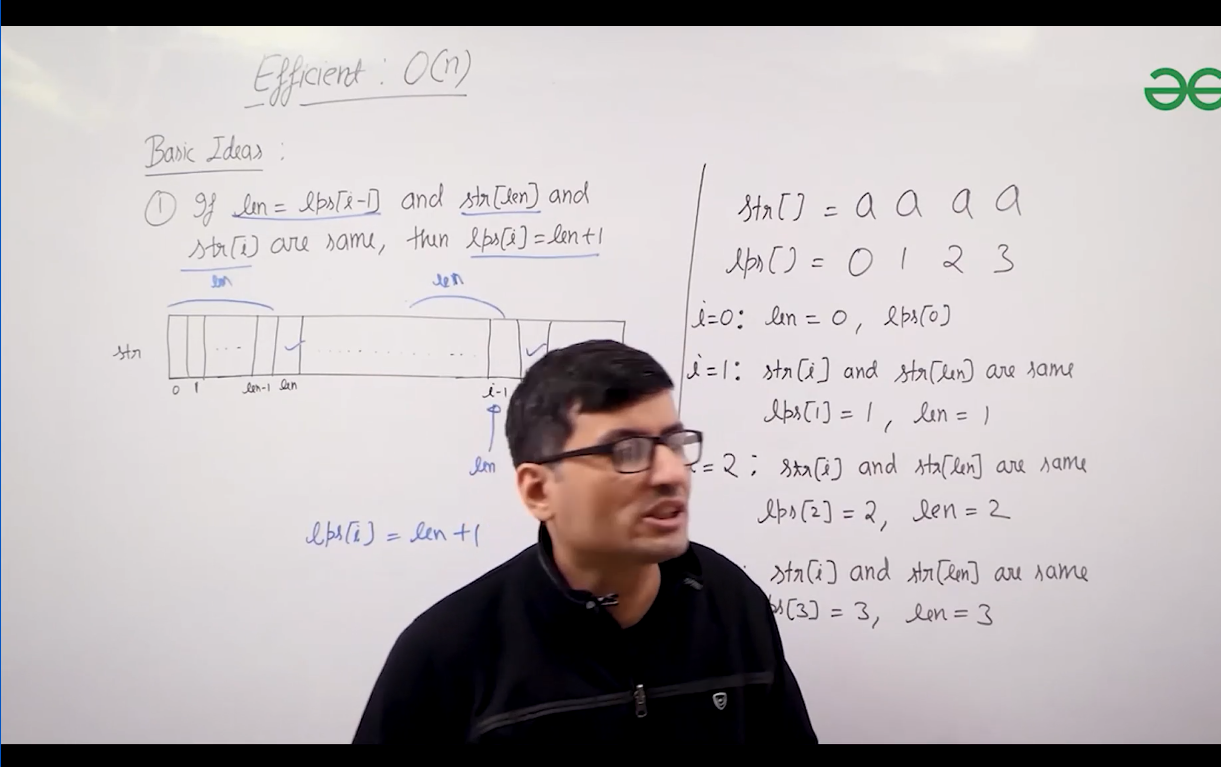 Efficient : O(n)
Basic Ideas :
① If len = lps[i-1] and str[len] and
str[i] are same, then lps[i] = len+1
len
len
str
0 1 len-1 len i-1
len
lps[i] = len+1
str[] = a a a a
lps[] = 0 1 2 3
i=0: len = 0, lps[0]
i=1: str[i] and str[len] are same
lps[1] = 1, len = 1
= 2 ; str[i] and str[len] are same
lps[2] = 2, len = 2
str[i] and str[len] are same
ps[3] = 3, len = 3